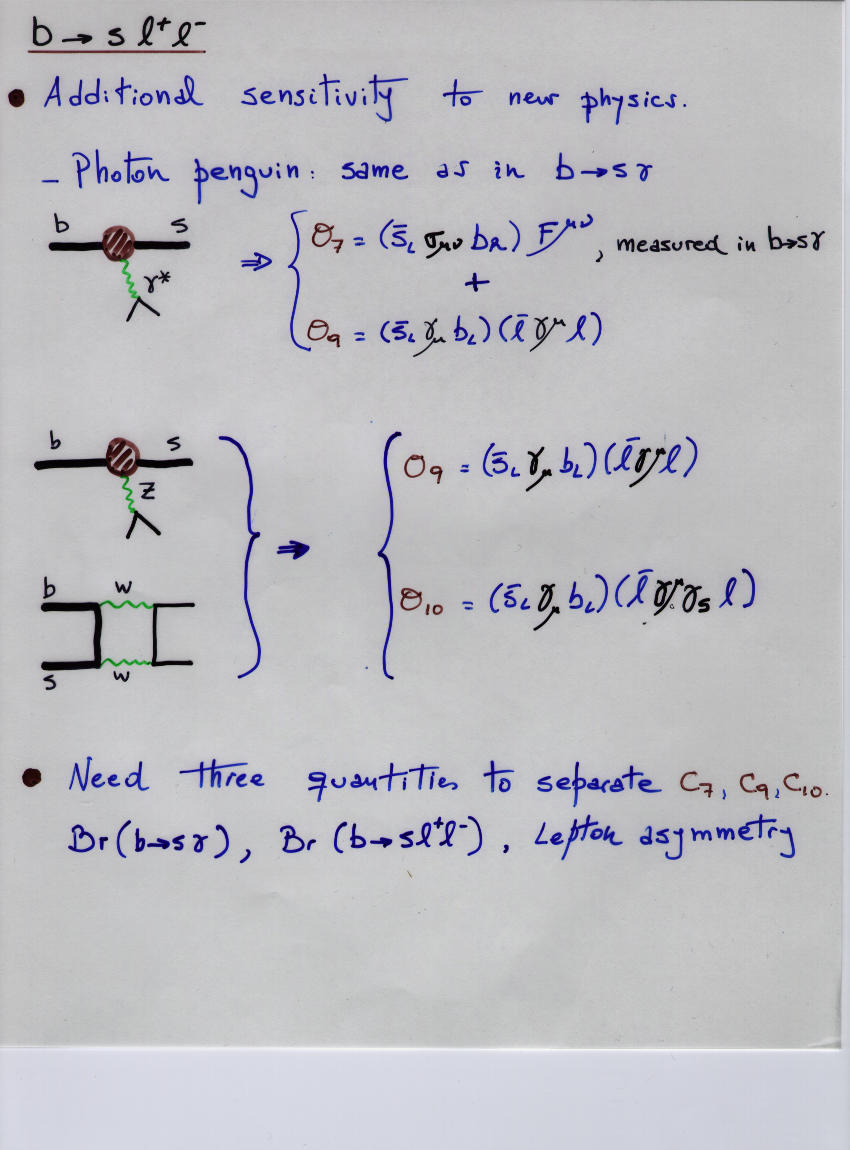 b → s l⁺ l⁻
• Additional sensitivity to new physics.
– Photon penguin: same as in b→sγ
b s
γ*
⇒ { O₇ = (s̄_L σ_μν b_R) F^μν , measured in b→sγ
+
O₉ = (s̄_L γ_μ b_L)(l̄ γ^μ l)
b s
Z
O₉ = (s̄_L γ_μ b_L)(l̄ γ^μ l)
⇒
b W
O₁₀ = (s̄_L γ_μ b_L)(l̄ γ^μ γ₅ l)
s W
• Need three quantities to separate C₇, C₉, C₁₀.
Br(b→sγ), Br (b→sl⁺l⁻), Lepton asymmetry